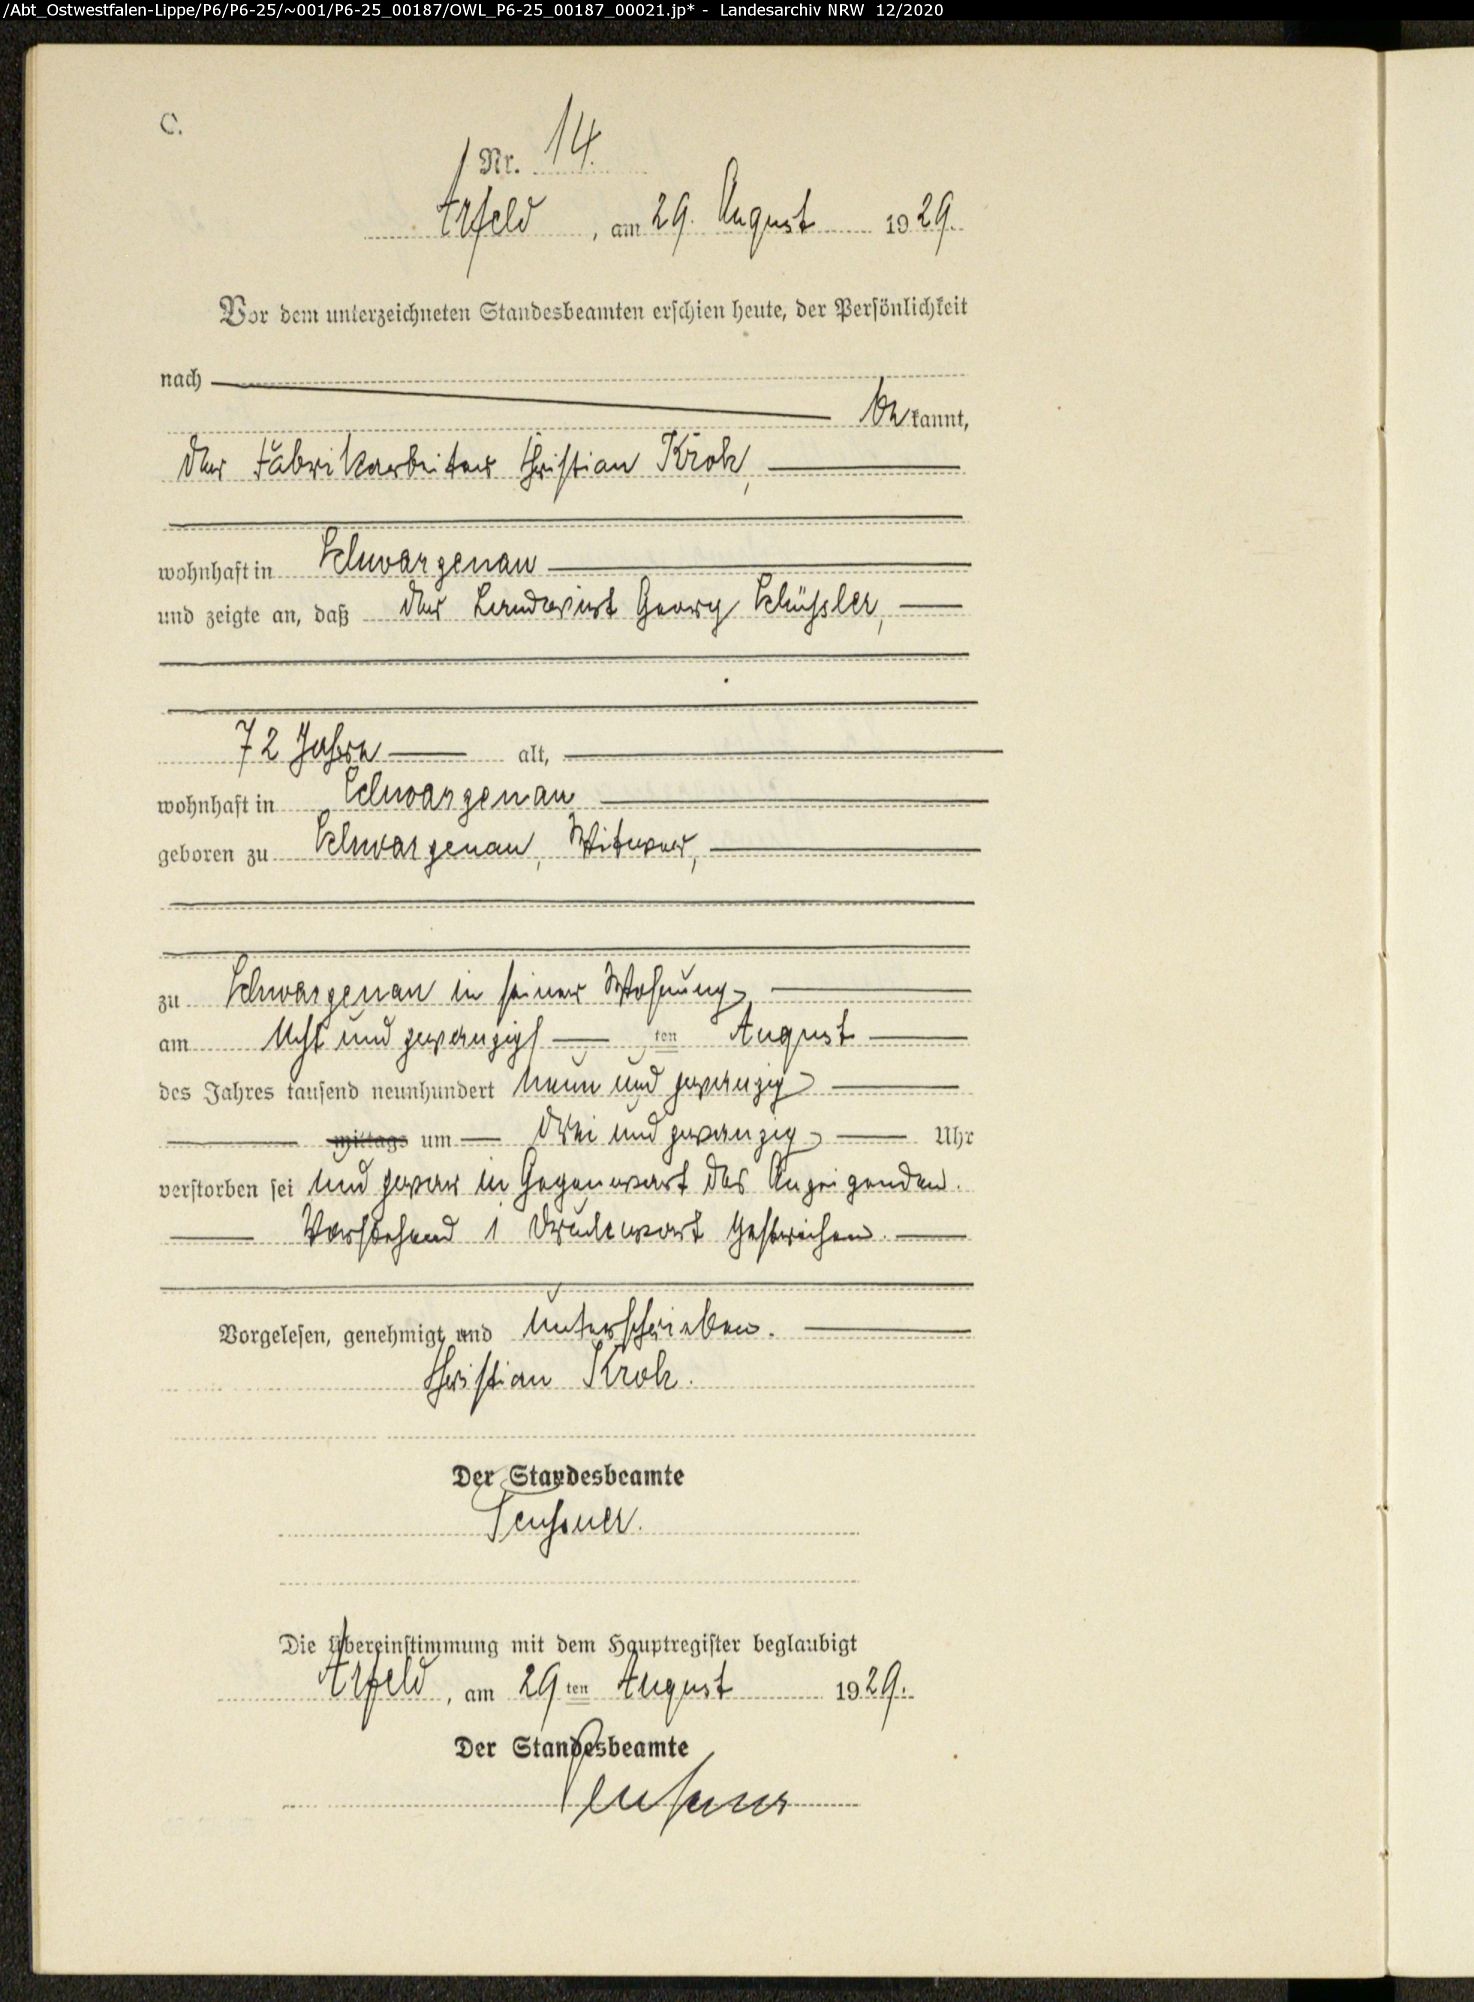 /Abt_Ostwestfalen-Lippe/P6/P6-25/~001/P6-25_00187/OWL_P6-25_00187_00021.jp* - Landesarchiv NRW 12/2020
C.
Nr. 14.
Arfeld, am 29. August 1929.
Vor dem unterzeichneten Standesbeamten erschien heute, der Persönlichkeit
nach
be kannt,
der Fabrikarbeiter Christian Kroh,
wohnhaft in Schwarzenau
und zeigte an, daß der Landwirt Georg Schüssler,
72 Jahre alt,
wohnhaft in Schwarzenau
geboren zu Schwarzenau, Witwer,
zu Schwarzenau in seiner Wohnung
am Acht und zwanzigs ten August
des Jahres tausend neunhundert neun und zwanzig
mittags um drei und zwanzig Uhr
verstorben sei und zwar in Gegenwart des Anzeigenden.
Vorstehend 1 Druckwort gestrichen.
Vorgelesen, genehmigt und unterschrieben.
Christian Kroh.
Der Standesbeamte
Der Übereinstimmung mit dem Hauptregister beglaubigt
Arfeld, am 29ten August 1929.
Der Standesbeamte